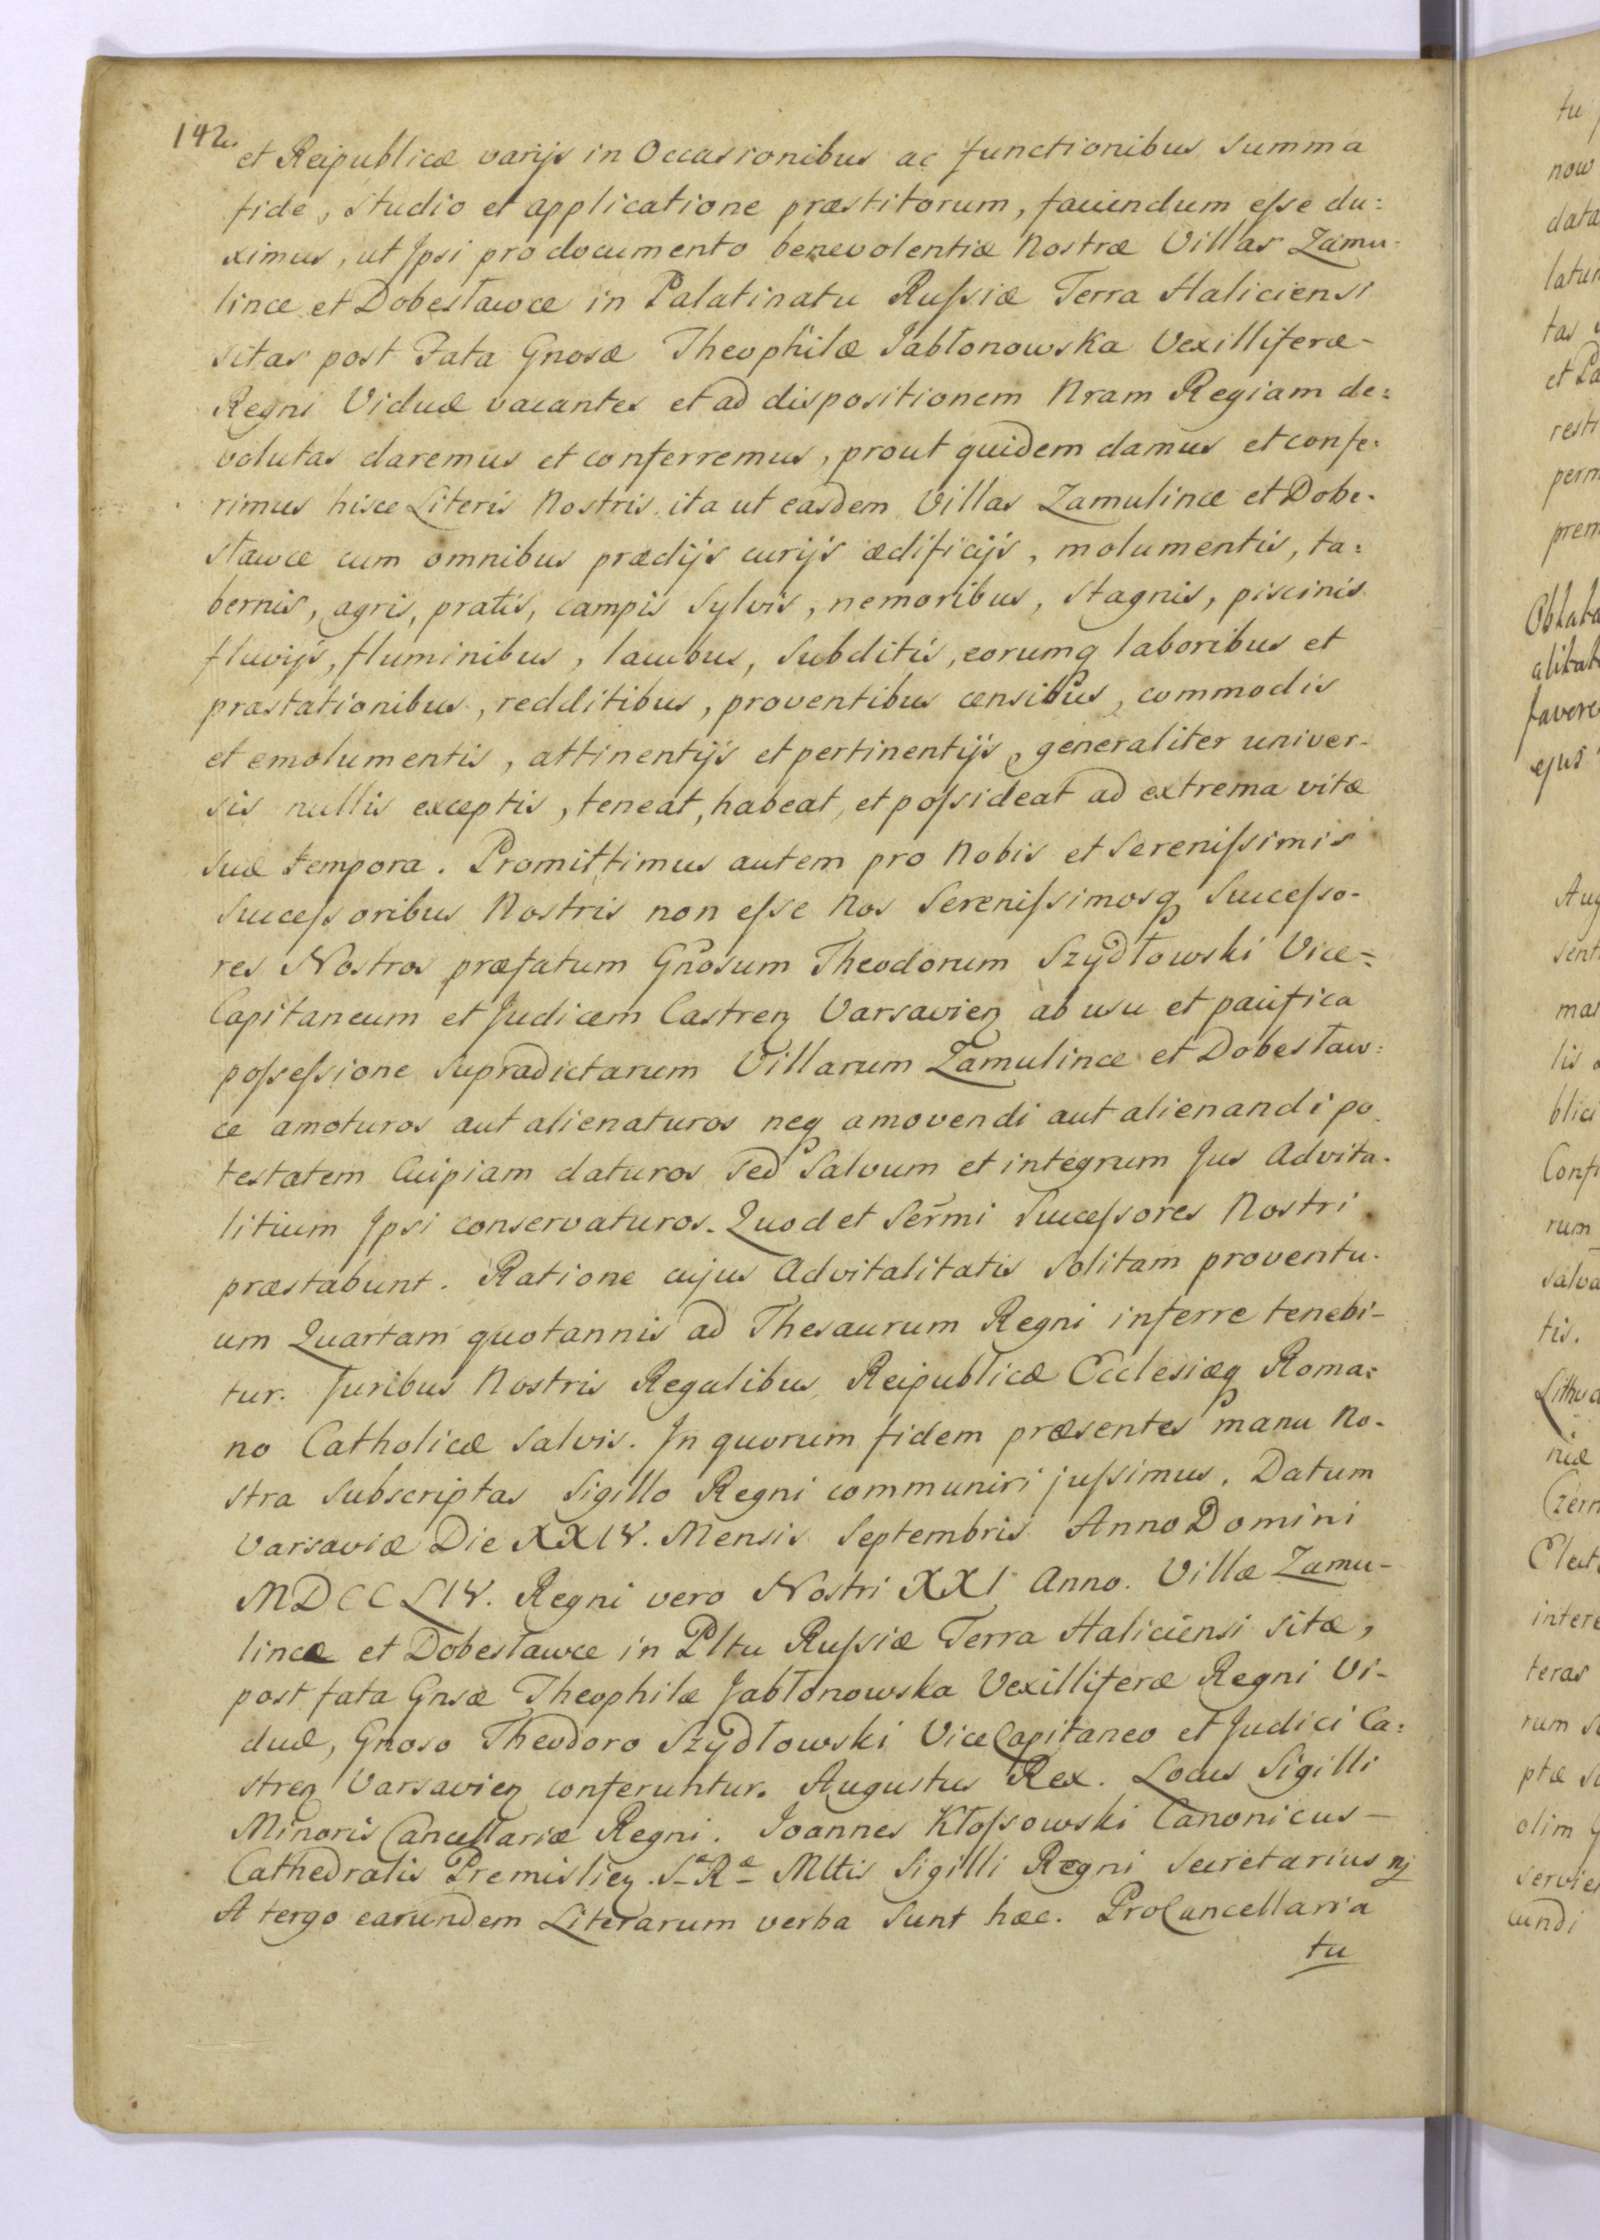 142.
et Reipublicæ varijs in Occasionibus ac functionibus summa
fide, studio et applicatione præstitorum, faciendum esse du:
ximus, ut Ipsi pro documento benevolentiæ Nostræ Villas Zamu-
lince et Dobesławce in Palatinatu Russiæ Terra Haliciensi
sitas post Fata Gnosæ Theophilæ Jabłonowska Vexilliferæ-
Regni Viduæ vacantes et ad dispositionem Nram Regiam de:
volutas daremus et conferremus, prout quidem damus et confe:
rimus hisce Literis Nostris ita ut easdem Villas Zamulince et Dobe-
sławce cum omnibus prædijs curijs ædificijs, molumentis, ta:
bernis, agris, pratis, campis sylvis, nemoribus, stagnis, piscinis
fluvijs, fluminibus, lacubus, subditis, eorumq laboribus et
præstationibus, redditibus, proventibus censibus, commodis
et emolumentis, attinentijs et pertinentijs, generaliter univer-
sis nullis exceptis, teneat, habeat, et possideat ad extrema vitæ
suæ tempora. Promittimus autem pro Nobis et Serenissimis
Successoribus Nostris non esse Nos Serenissimosq Successo-
res Nostros præfatum Gnosum Theodorum Szydłowski Vice=
Capitaneum et Judicem Castren Varsavien ab usu et pacifica
possessione supradictarum Villarum Zamulince et Dobesław:
ce amoturos aut alienaturos neq amovendi aut alienandi po
testatem Cuipiam daturos sed Salvum et integrum Jus Advita-
litium Ipsi conservaturos. Quod et Sermi Successores Nostri
præstabunt. Ratione cujus Advitalitatis Solitam proventu-
um Quartam quotannis ad Thesaurum Regni inferre tenebi-
tur. Juribus Nostris Regalibus, Reipublicæ Ecclesiæq Roma:
no Catholicæ Salvis. In quorum fidem præsentes manu No-
stra subscriptas Sigillo Regni communiri jussimus. Datum
Varsaviæ Die XXIV. Mensis Septembris Anno Domini
MDCCLIV. Regni vero Nostri XXI Anno. Villæ Zamu-
lince et Dobesławce in Pltu Russiæ Terra Haliciensi sitæ,
post fata Gnsæ Theophilæ Jabłonowska Vexilliferæ Regni Vi-
duæ, Gnoso Theodoro Szydłowski Vice Capitaneo et Judici Ca:
stren Varsavien conferuntur. Augustus Rex. Locus Sigilli
Minoris Cancellariæ Regni. Joannes Kłossowski Canonicus-
Cathedralis Premislien. Sæ Ræ Mltis Sigilli Regni Secretarius
A tergo earundem Literarum verba sunt hæc. ProCancellaria
tu